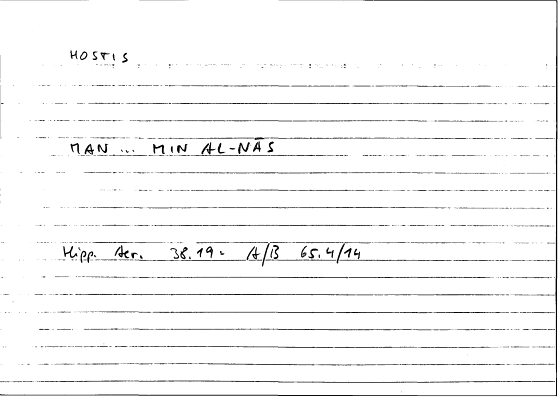 HOSTIS
MAN ... MIN AL-NĀS
Hipp. Aer. 38.19 - A/B 65.4/14